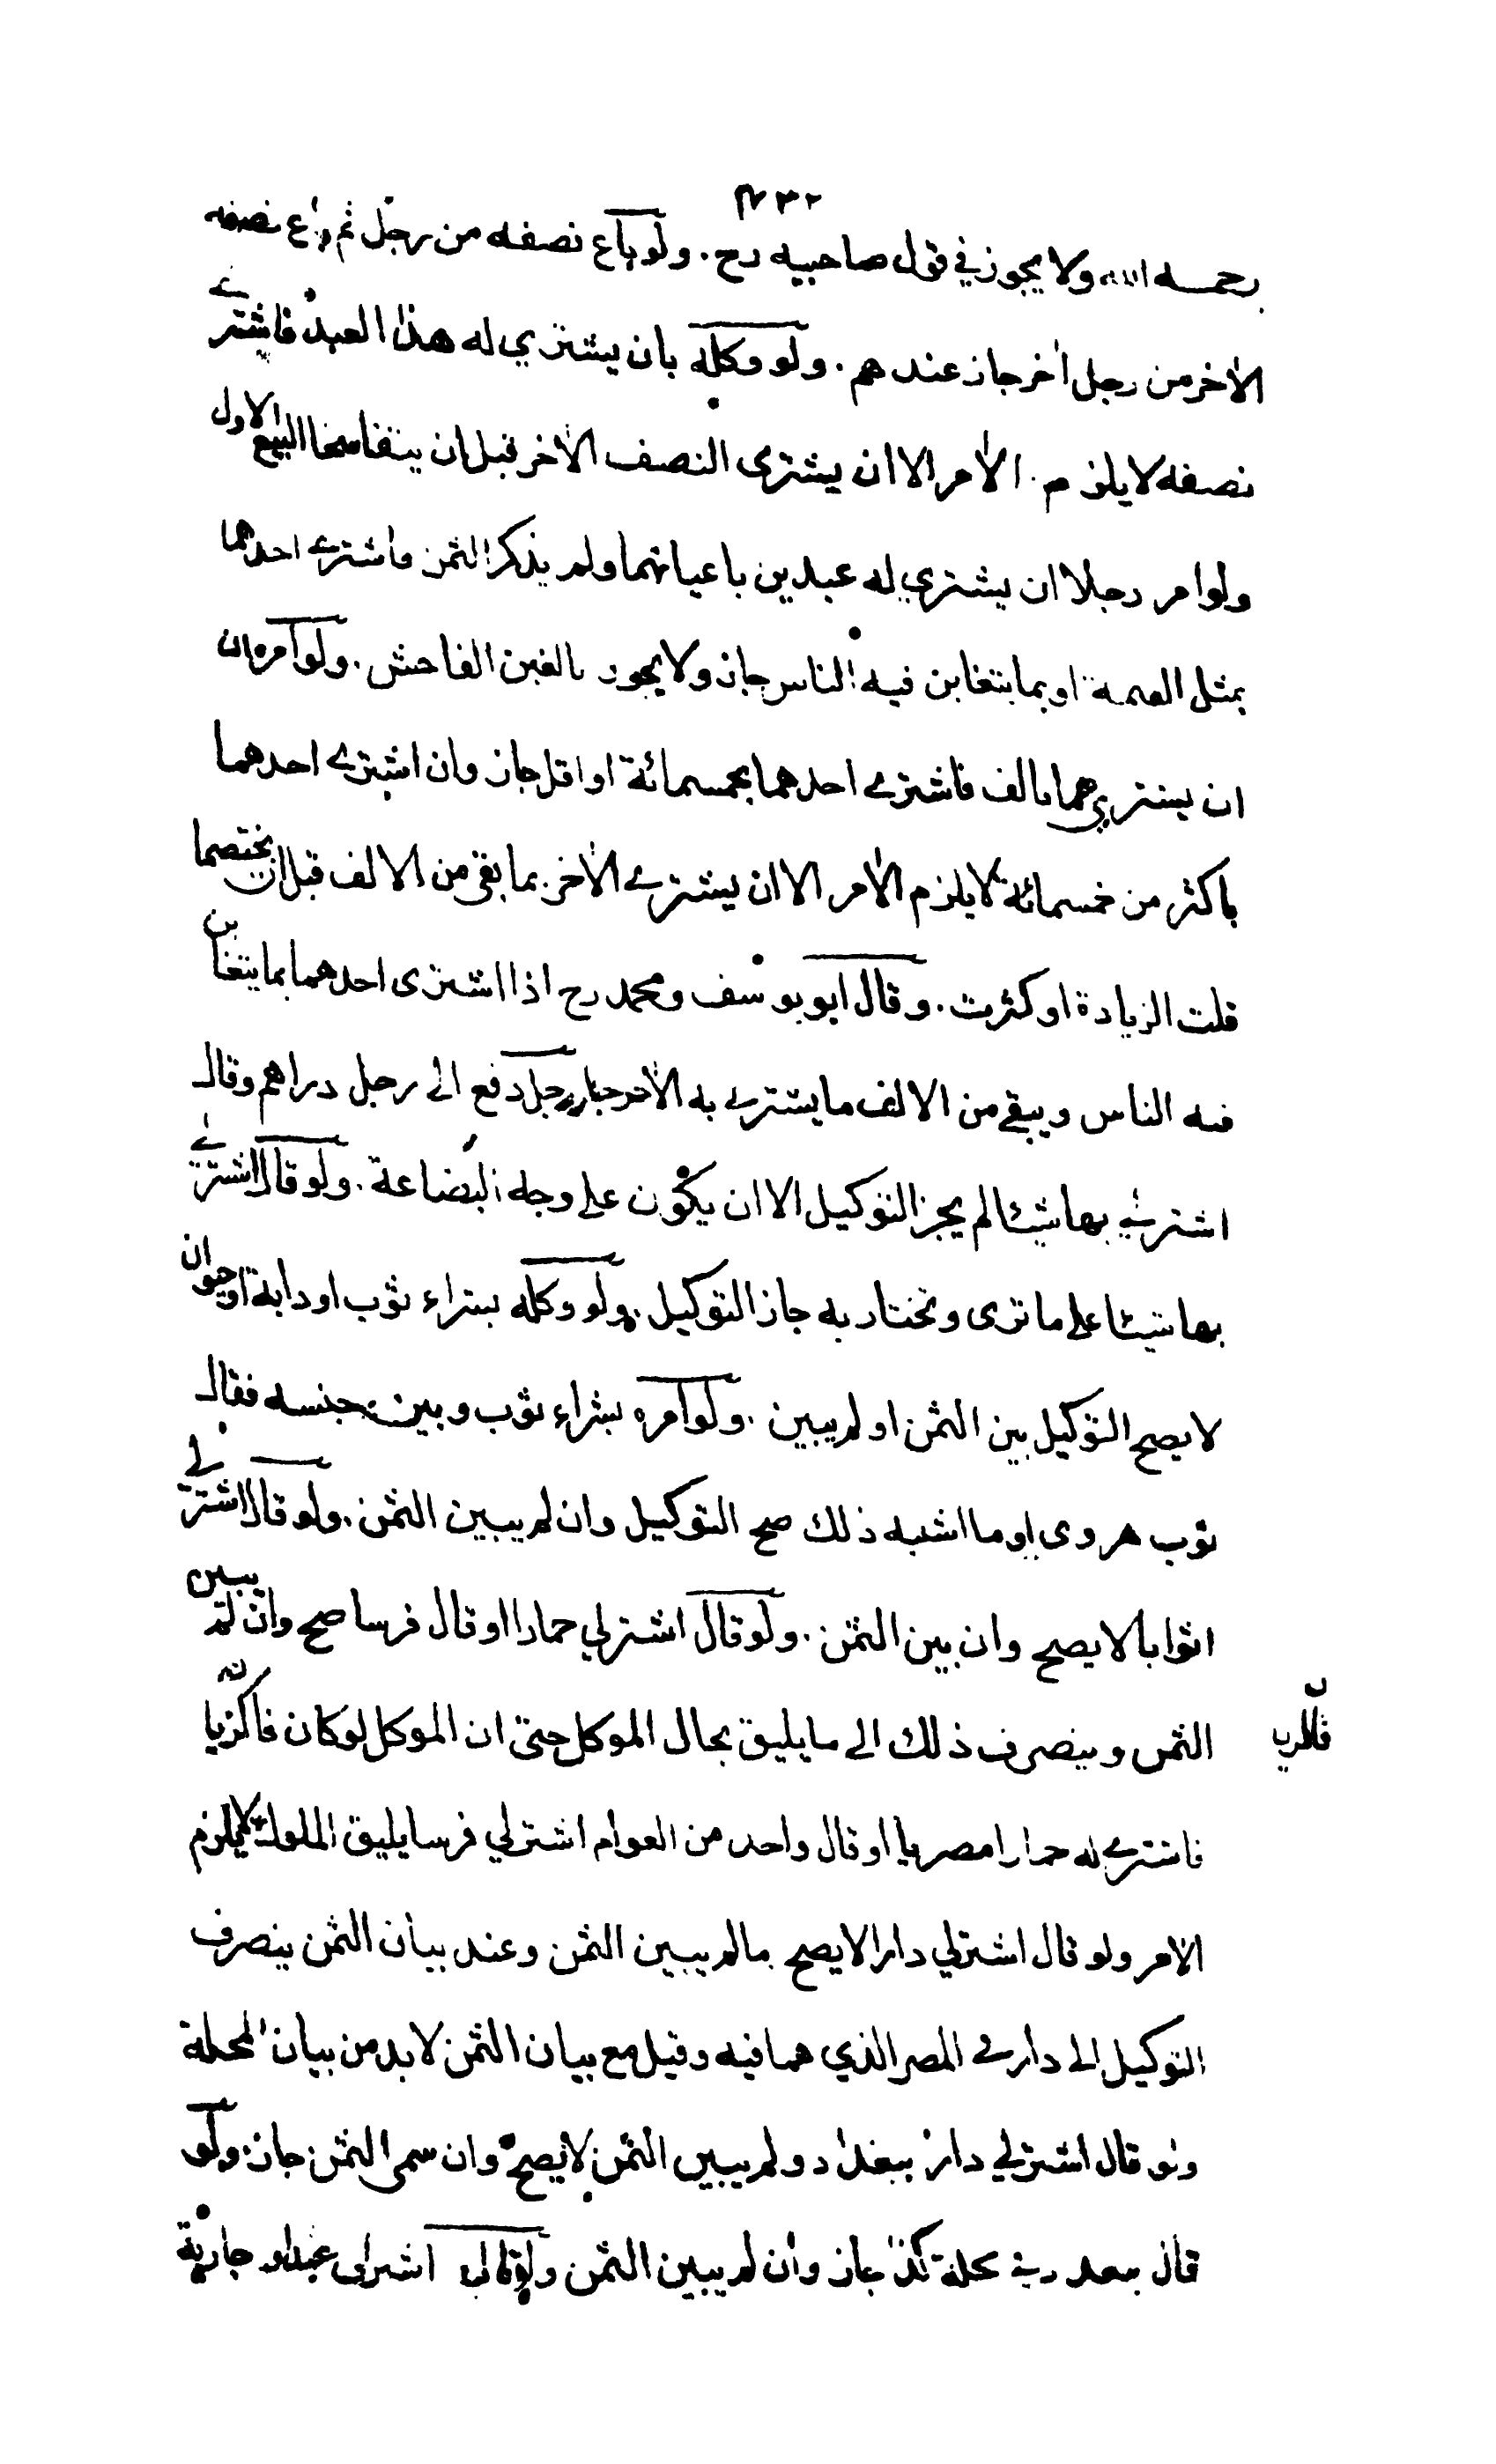 رحمه الله ولا يجوز في قول صاحبيه رح . ولو باع نصفه من رجل ثم باع نصفه
الآخر من رجل آخر جاز عندهم . ولو وكله بان يشتري له هذا العبد فاشترى
نصفه لا يلزم الآمر الا ان يشترى النصف الآخر قبل ان يتفاسخا البيع الاول
ولو امر رجلا ان يشتري له عبدين باعيانهما ولم يذكر الثمن فاشترى احدهما
بمثل القيمة او بما يتغابن فيه الناس جاز ولا يجوز بالغبن الفاحش . ولو امره بان
ان يشتريهما بالف فاشترى احدهما بخمسمائة او اقل جاز وان اشترى احدهما
باكثر من خمسمائة لا يلزم الآمر الا ان يشترى الآخر بما بقي من الالف قبل ان يختصما
قلت الزيادة او كثرت . وقال ابو يوسف ومحمد رح اذا اشترى احدهما بما يتغابن
فيه الناس ويبقى من الالف ما يشترى به الآخر جاز رجل دفع الى رجل دراهم وقال
اشتر لي بها شيئا لم يجز التوكيل الا ان يكون على وجه البضاعة . ولو قال اشتر لي
بها شيئا على ما ترى وتختار به جاز التوكيل . ولو وكله بشراء ثوب او دابة او حيوان
لا يصح التوكيل بين الثمن او لم يبين . ولو امره بشراء ثوب وبين جنسه فقال
ثوب هروى او ما اشبه ذلك صح التوكيل وان لم يبين الثمن . ولو قال اشتر لي
اثوابا لا يصح وان بين الثمن . ولو قال اشتر لي حمارا او قال فرسا صح وان لم يبين
الثمن وينصرف ذلك الى ما يليق بحال الموكل حتى ان الموكل لو كان
فاشترى له حمارا مصريا او قال واحد من العوام اشتر لي فرسا يليق الملوك لا يلزم
الآمر ولو قال اشتر لي دارا لا يصح ما لم يبين الثمن وعند بيان الثمن ينصرف
التوكيل الى دار في المصر الذي هما فيه وقيل مع بيان الثمن لا بد من بيان المحلة
ولو قال اشتر لي دارا ببغداد ولم يبين الثمن لا يصح وان سمى الثمن جاز . ولو
قال في محلة كذا جاز وان لم يبين الثمن ولو قال اشتر لي عبدا او جارية